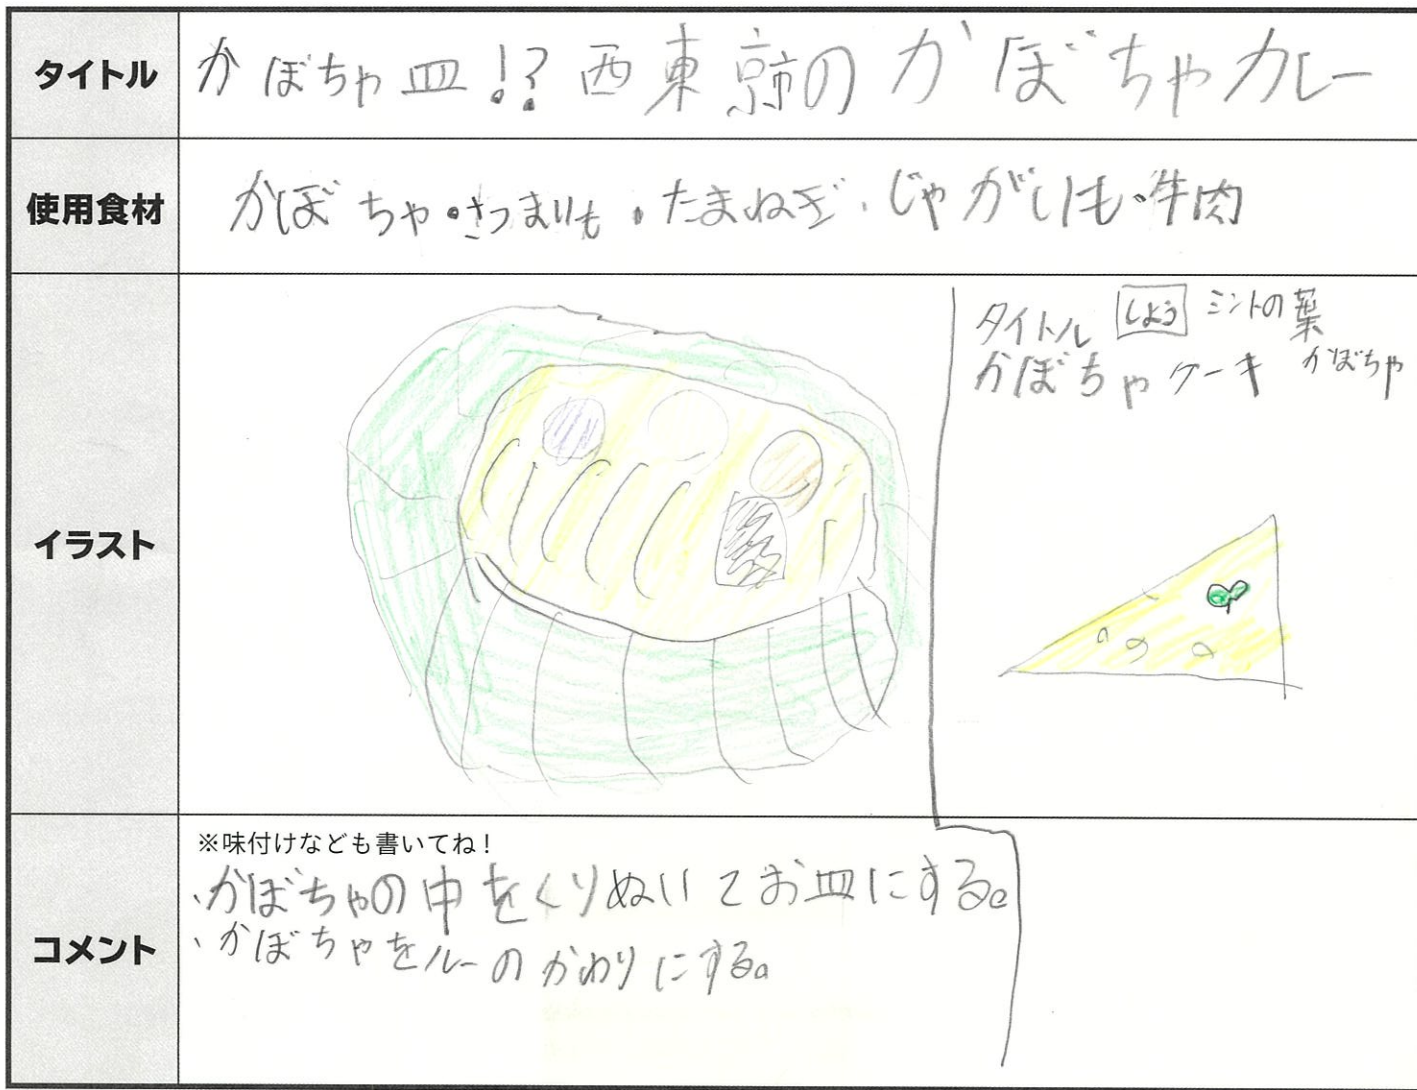 タイトル
かぼちゃ皿!?西東京のかぼちゃカレー
使用食材
かぼちゃ・さつまいも・たまねぎ・じゃがいも・牛肉
イラスト
タイトル
かぼちゃケーキ
しよう ミントの葉
かぼちゃ
コメント
※味付けなども書いてね!
、かぼちゃの中をくりぬいてお皿にする。
、かぼちゃをルーのかわりにする。